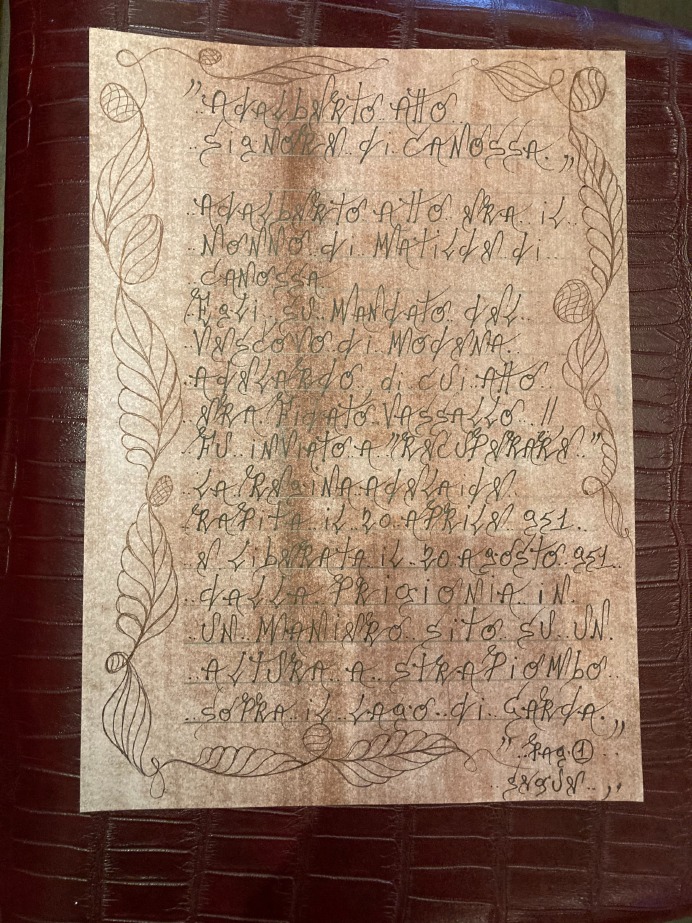 "ADALBERTO ATTO
SIGNORE di CANOSSA."
ADALBERTO ATTO ERA iL
NONNO di MATiLDE di
CANOSSA
EGLi, SU MANDATO dEL
VESCOVO di MODENA
ADELARDO, di CUi ATTO
ERA FIDATO VASSALLO
FU iNViATO A "RECUPERARE"
LA REGiNA ADELAIDE
RAPiTA iL 20 APRiLE 951.
E LiBERATA iL 20 AGOSTO 951
DALLA PRiGiONiA iN
UN MANiERO SiTO SU UN
ALTURA A STRAPiOMbO
SOPRA iL LAGO di GARDA."
"PAG. 1
SEGUE.."